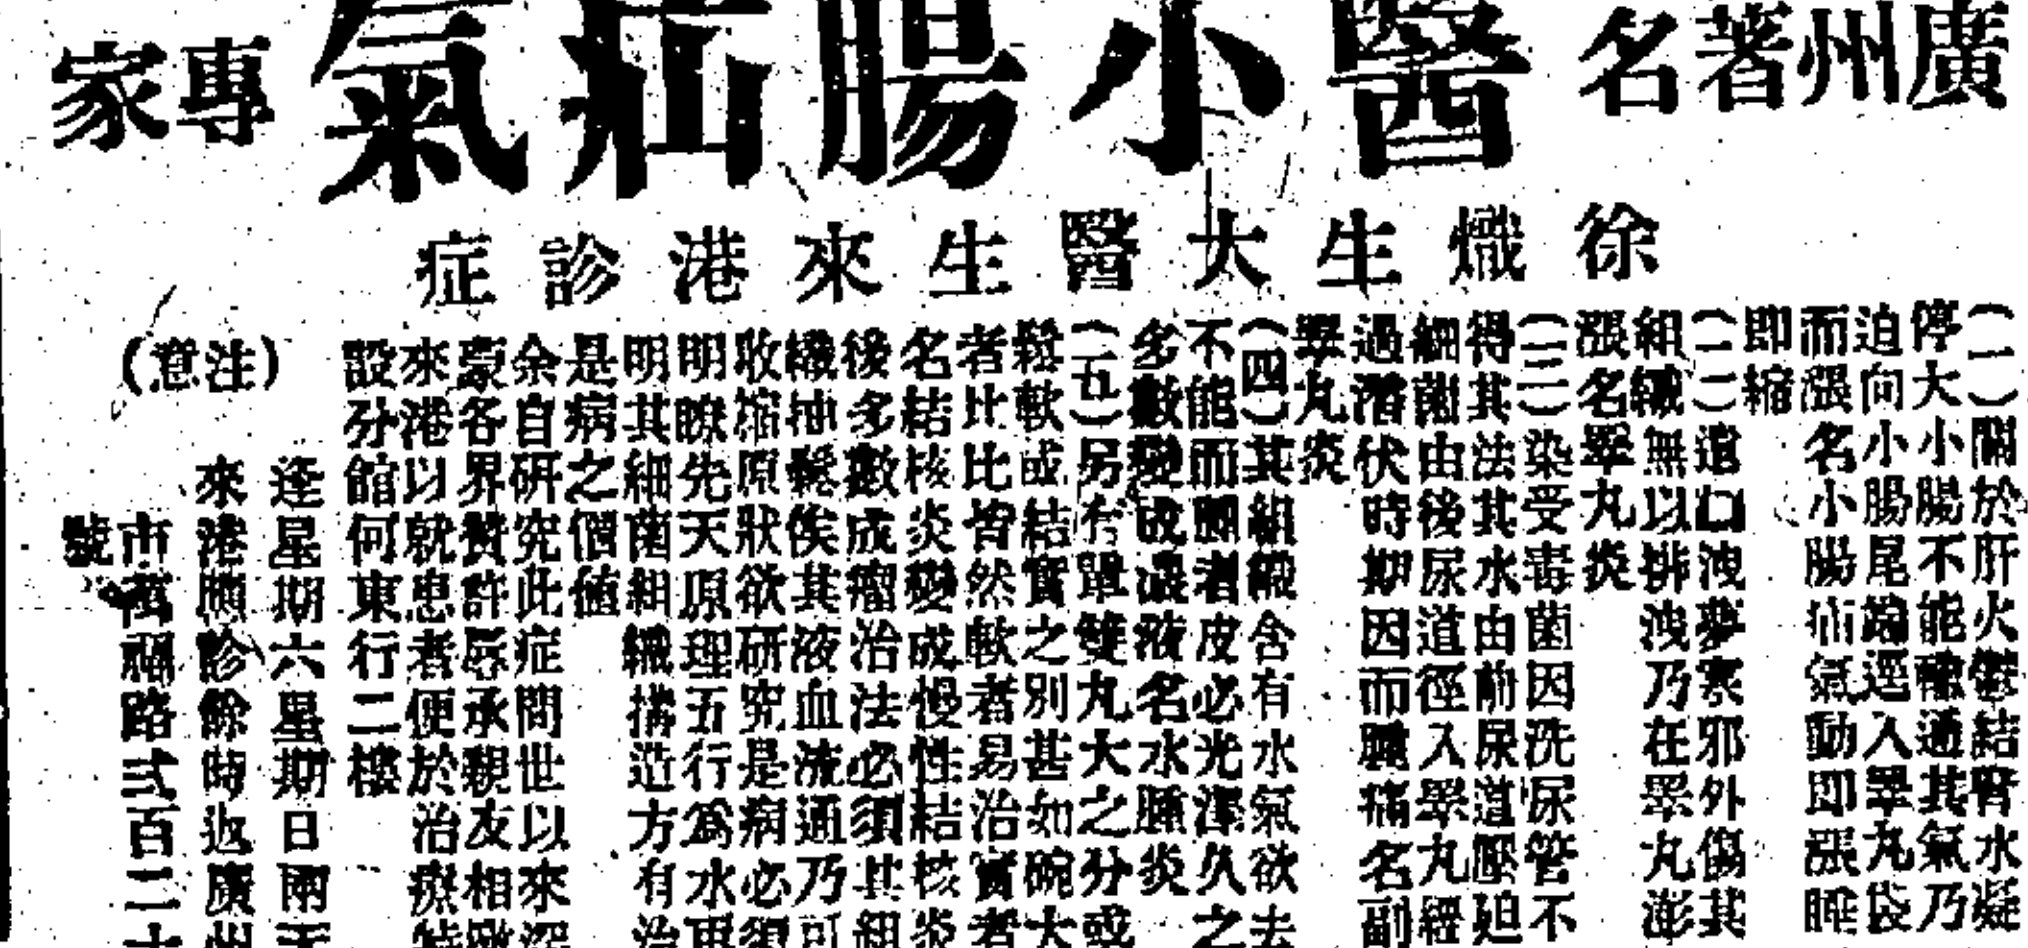 廣州著名
醫小腸疝氣
專家
徐熾生大醫生來港診症
(一)關於肝火鬱結腎水凝
停大小腸不能暢通其氣乃
迫向小腸尾端逕入睪丸袋
而漲名小腸疝氣動即漲睡
即縮
(二)遺口洩夢寒邪外傷其
組織無以排洩乃在睪丸澎
漲名睪丸炎
(三)染受毒菌因洗尿管不
得其法其水由前尿道壓迫
細菌由後尿道徑入睪丸經
過潛伏時期因而腫痛名副
睪丸炎
(四)其組織含有水氣欲去
不能而腫者皮必光澤久之
多數變成濃液名水腫炎
(五)另有單雙丸大之分或
鬆軟或結實之別甚如碗大
者比比皆然軟者易治實者
名結核炎變成慢性結核炎
後多數成瘤治法必須其組
織抽鬆俟其液血液通乃可
收縮原狀欲研究是病必須
明瞭先天原理五行為水再
明其細菌組織搆造方有治
是病之價值
余自研究此症問世以來深
蒙各界贊許辱承親友相邀
來港以就患者便於治療特
設分館何東行二樓
(注意)
逢星期六星期日兩天
來港應診餘時返廣州
市萬福路弍百二十
號